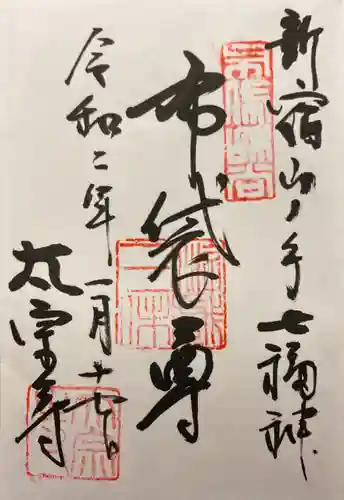 新宿山ノ手七福神
布袋尊
令和二年一月十七日
太宗寺